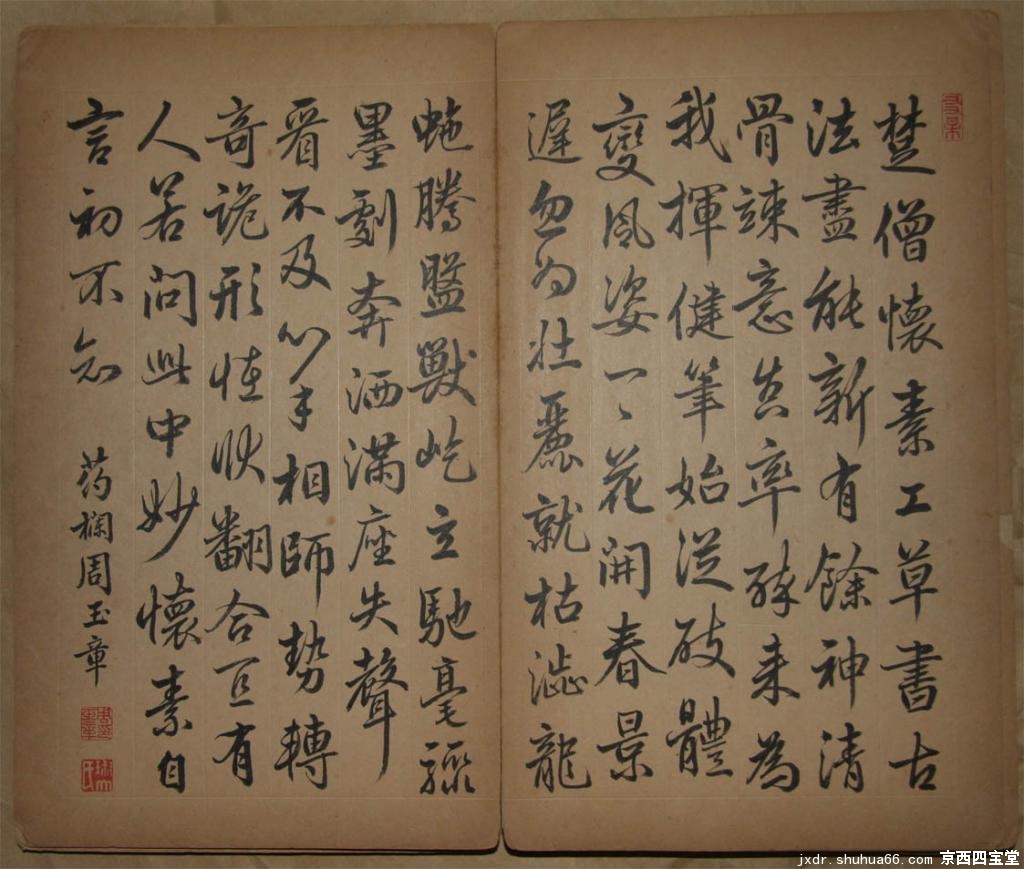 楚僧懷素工草書古
法盡能新有餘神清
骨竦意真率醉來為
我揮健筆始從破體
變風姿一一花開春景
遲忽為壯麗就枯澁龍
虵騰盤獸屹立馳毫驟
墨劇奔洒滿座失聲
看不及心手相師勢轉
奇詭形怪状翻合宜有
人若問此中妙懷素自
言初不知 药欄周玉章
jxdr.shuhua66.com 京西四宝堂